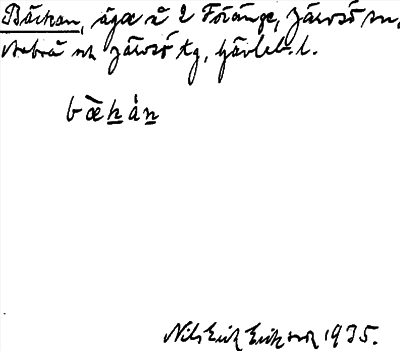 Bäckan, ägor i 2 Föränge, Järvsö sn,
Arbrå och Järvsö tg, Gävleb. l.
bæ̀hȧn
Nils Erik Eriksson 1935.